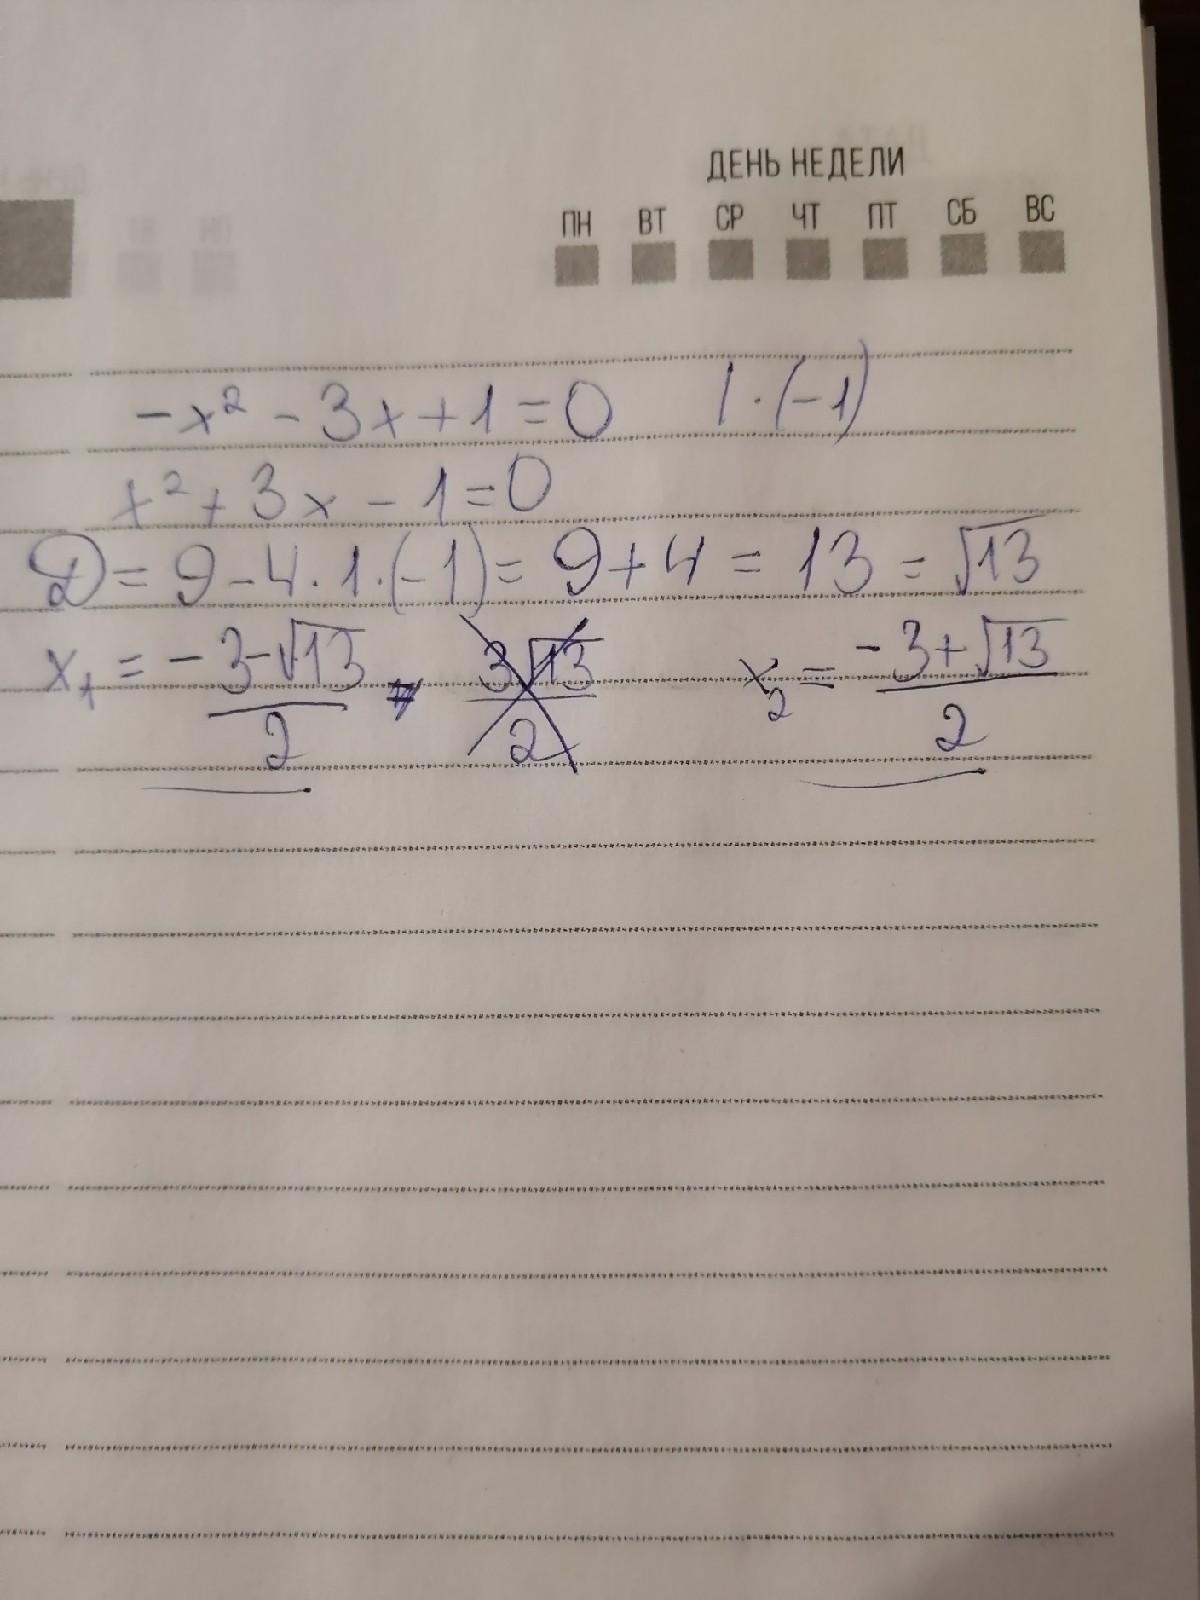 ДЕНЬ НЕДЕЛИ
ПН ВТ СР ЧТ ПТ СБ ВС
-x² - 3x + 1 = 0 | · (-1)
x² + 3x - 1 = 0
D = 9 - 4 · 1 · (-1) = 9 + 4 = 13 = √13
x₁ = (-3 - √13)/2 = (3√13)/2 x₂ = (-3 + √13)/2